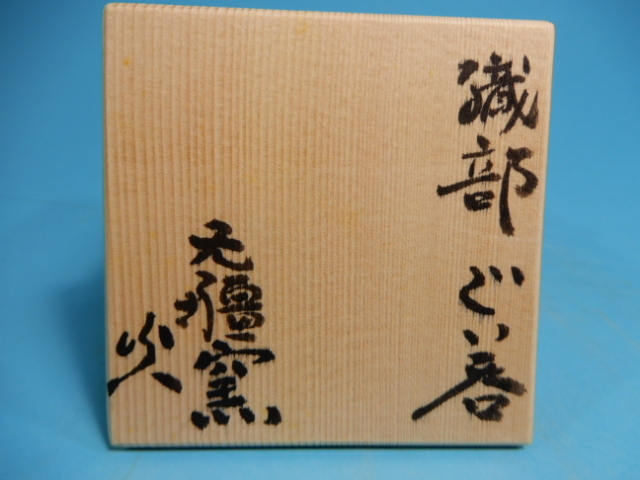 織部ぐい呑
无疆窯